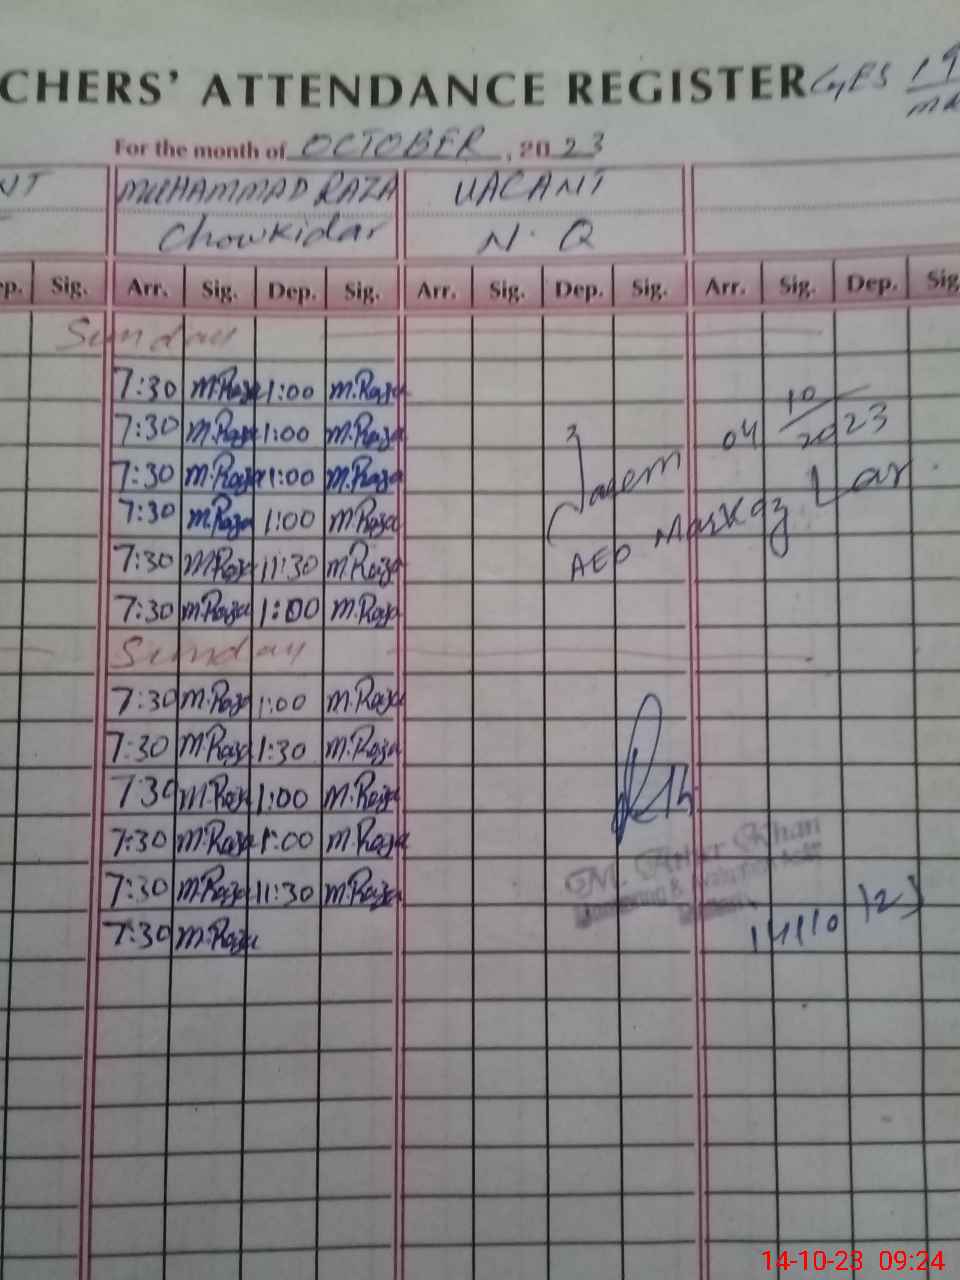 CHERS' ATTENDANCE REGISTER GES 19
For the month of OCTOBER, 2023
NT MUHAMMAD RAZA VACANT
Chowkidar N. Q
ep. Sig. Arr. Sig. Dep. Sig. Arr. Sig. Dep. Sig. Arr. Sig. Dep. Sig.
Sunday
7:30 M.Raza 1:00 M.Raza
7:30 M.Raza 1:00 M.Raza 04 10/2023
7:30 M.Raza 1:00 M.Raza
7:30 M.Raza 1:00 M.Raza AEO Markaz Lar
7:30 M.Raza 11:30 M.Raza
7:30 M.Raza 1:00 M.Raza
Sunday
7:30 M.Raza 1:00 M.Raza
7:30 M.Raza 1:30 M.Raza
7:30 M.Raza 1:00 M.Raza
7:30 M.Raza 1:00 M.Raza
Khan
7:30 M.Raza 11:30 M.Raza
7:30 M.Raza 14/10/23
14-10-23 09:24